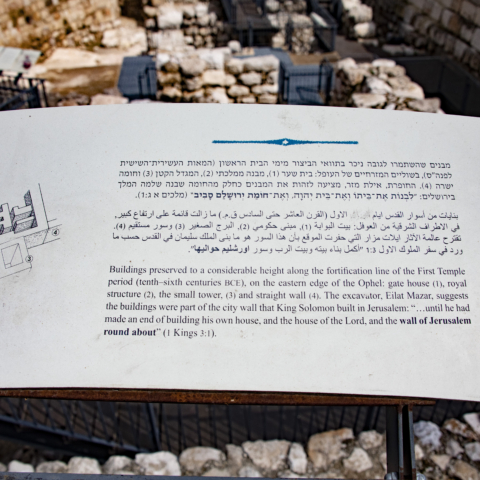 מבנים שהשתמרו לגובה ניכר בתוואי הביצור מימי הבית הראשון (המאות העשירית־השישית
לפנה"ס), בשוליים המזרחיים של העופל: בית שער (1), מבנה ממלכתי (2), המגדל הקטן (3) וחומה
ישרה (4). החופרת, אילת מזר, מציעה לזהות את המבנים כחלק מהחומה שבנה שלמה המלך
בירושלים: "לִבְנוֹת אֶת־בֵּיתוֹ וְאֶת־בֵּית יְהוָה, וְאֶת־חוֹמַת יְרוּשָׁלִַם סָבִיב" (מלכים א ג:1).
بنايات من أسوار القدس ايام الاول (القرن العاشر حتى السادس ق.م.) ما زالت قائمة على ارتفاع كبير,
في الاطراف الشرقية من العوفل: بيت البوابة (1), مبنى حكومي (2), البرج الصغير (3) وسور مستقيم (4).
تقترح عالمة الآثار ايلات مزار التي حفرت الموقع بأن هذا السور هو ما بنى الملك سليمان في القدس حسب ما
ورد في سفر الملوك الاول 1:3 "أكمل بناء بيته وبيت الرب وسور اورشليم حواليها".
Buildings preserved to a considerable height along the fortification line of the First Temple
period (tenth–sixth centuries BCE), on the eastern edge of the Ophel: gate house (1), royal
structure (2), the small tower, (3) and straight wall (4). The excavator, Eilat Mazar, suggests
the buildings were part of the city wall that King Solomon built in Jerusalem: "…until he had
made an end of building his own house, and the house of the Lord, and the wall of Jerusalem
round about" (1 Kings 3:1).
4
3